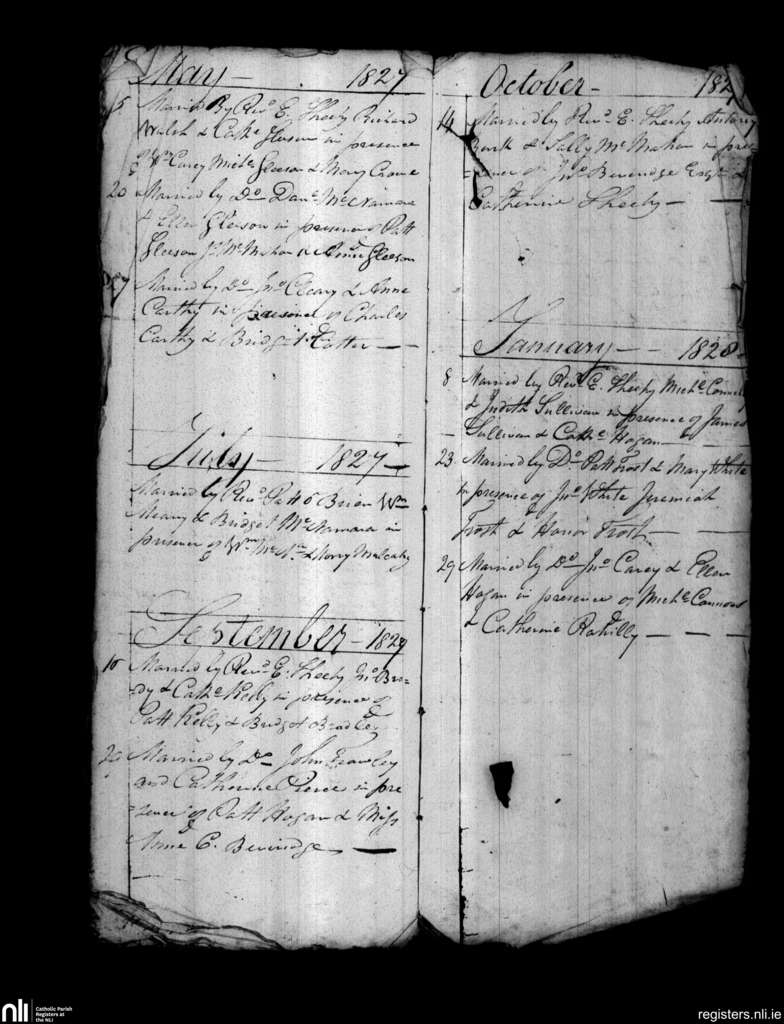 May – 1827
5 Married By Revd E. Sheehy Richard
Walsh & Cathe Gleeson in presence
of Wm Carey Michl Gleeson & Mary Crowe
20 Married by Do Danl McNamara
& Ellen Gleeson in presence of Patt
Gleeson Jas McMahon & Anne Gleeson
27 Married by Do Jno Cleary & Anne
Carthy in presence of Charles
Carthy & Bridget Cotter
July – 1827
Married by Revd Patt O Brien Wm
Meany & Bridget McNamara in
presence of Wm McNa & Mary Mulcahy
September – 1827
10 Married by Revd E. Sheehy Jno Bro=
dy & Cathe Kelly in presence of
Patt Kelly & Bridget Bradley
29 Married by Do John Frawley
and Catherine Pierce in pre
=sence of Patt Hogan & Miss
Anne C. Beveridge
October – 1827
14 Married by Revd E. Sheehy Antony
& Sally McMahon in pre=
=sence of Jno Beveridge Esqr &
Catherine Sheehy
January – 1828
8 Married by Revd E. Sheehy Michl
& Judith Sullivan in presence of James
Sullivan & Cathe Hogan
23 Married by Do Patt Frost & Mary White
in presence of Jno White Jeremiah
Frost & Honor Frost
29 Married by Do Jno Carey & Ellen
Hogan in presence of Michl Connors
& Catherine Rahilly
nli
Catholic Parish
Registers at
the NLI
registers.nli.ie